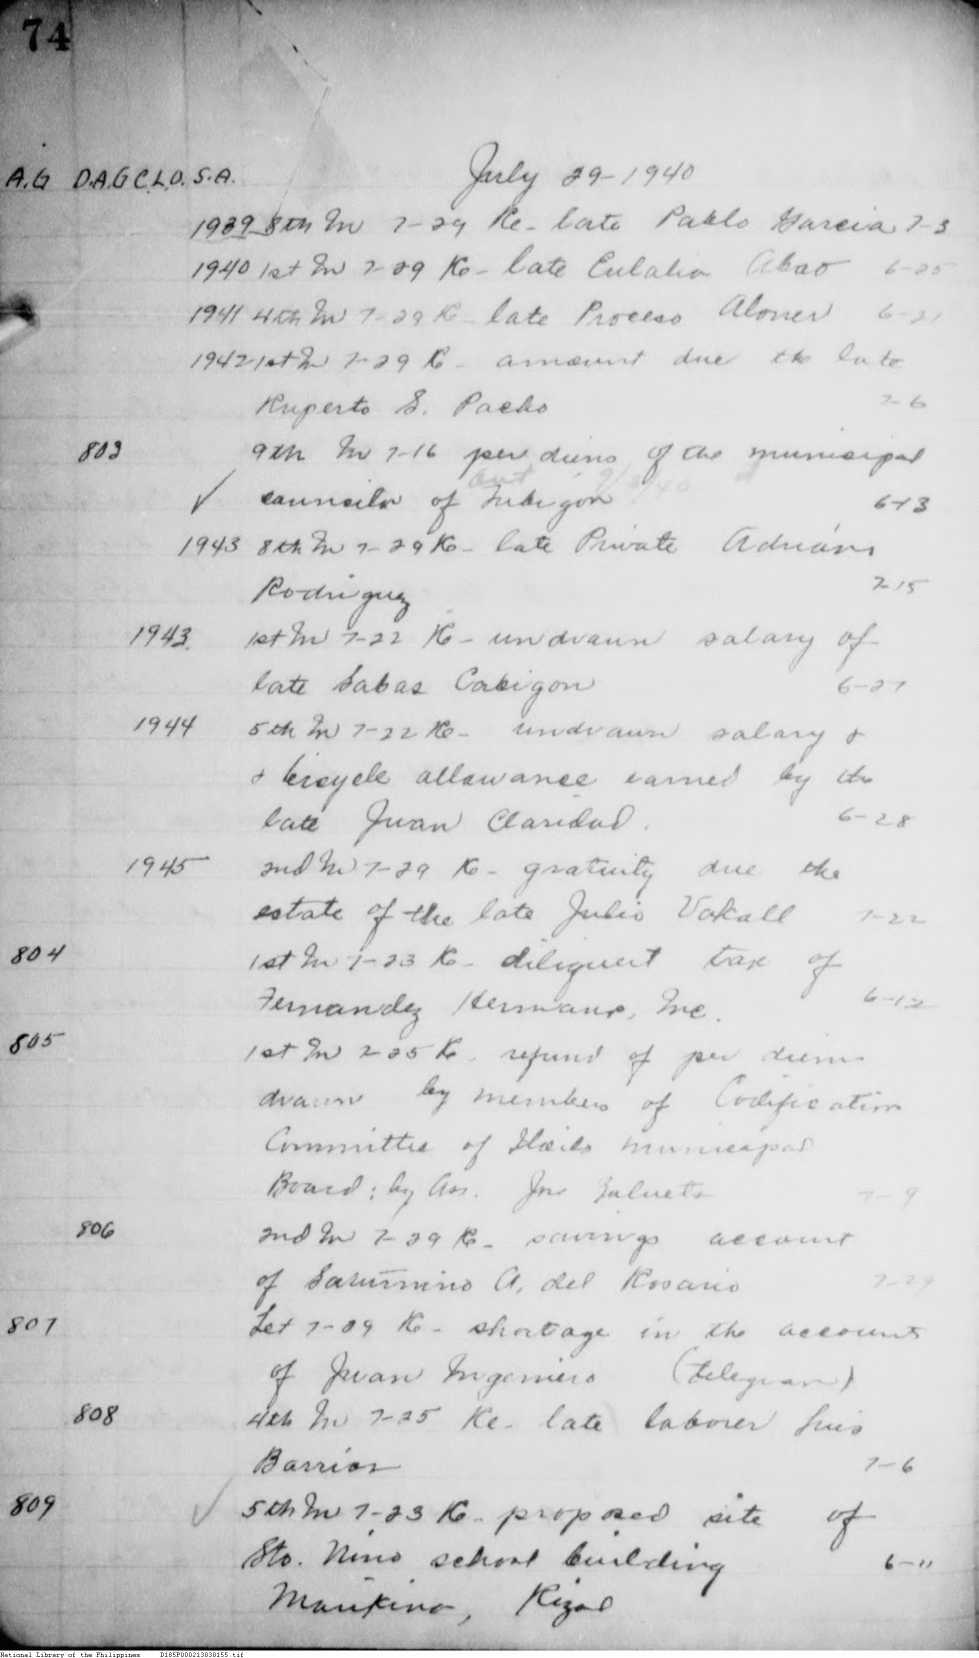 74
A.G D.A.G C.L.O. S.A. July 29-1940
1939 8th In 7-29 Re- late Pablo Garcia 7-3
1940 1st In 7-29 Re- late Eulalia Abao 6-25
1941 4th In 7-29 Re- late Proceso Aloner 6-21
1942 1st In 7-29 Re- amount due the late
Ruperto S. Pacho 7-6
803 9th In 7-16 per diems of the municipal
✓ councilor of Tubigon 6-13
1943 8th In 7-29 Re- late Private Adriano
Rodriguez 7-15
1943 1st In 7-22 Re- undrawn salary of
late Sabas Cabigon 6-27
1944 5th In 7-22 Re- undrawn salary &
& bicycle allowance earned by the
late Juan Claridad. 6-28
1945 2nd In 7-29 Re- gratuity due the
estate of the late Julio Vakall 7-22
804 1st In 7-23 Re- diliquent tax of
Fernandez Hermanos, Inc. 6-12
805 1st In 7-25 Re- refund of per diems
drawn by members of Codification
Committee of Iloilo Municipal
Board; by 7-9
806 2nd In 7-29 Re- savings account
of Saturnino A. del Rosario 7-29
807 Let 7-29 Re- shortage in the accounts
of Juan Ingeniero (telegram)
808 4th In 7-25 Re- late laborer Luis
Barrios 7-6
809 ✓ 5th In 7-23 Re- proposed site of
Sto. Nino school building 6-11
Marikina, Rizal
National Library of the Philippines D185P000213838155.tif